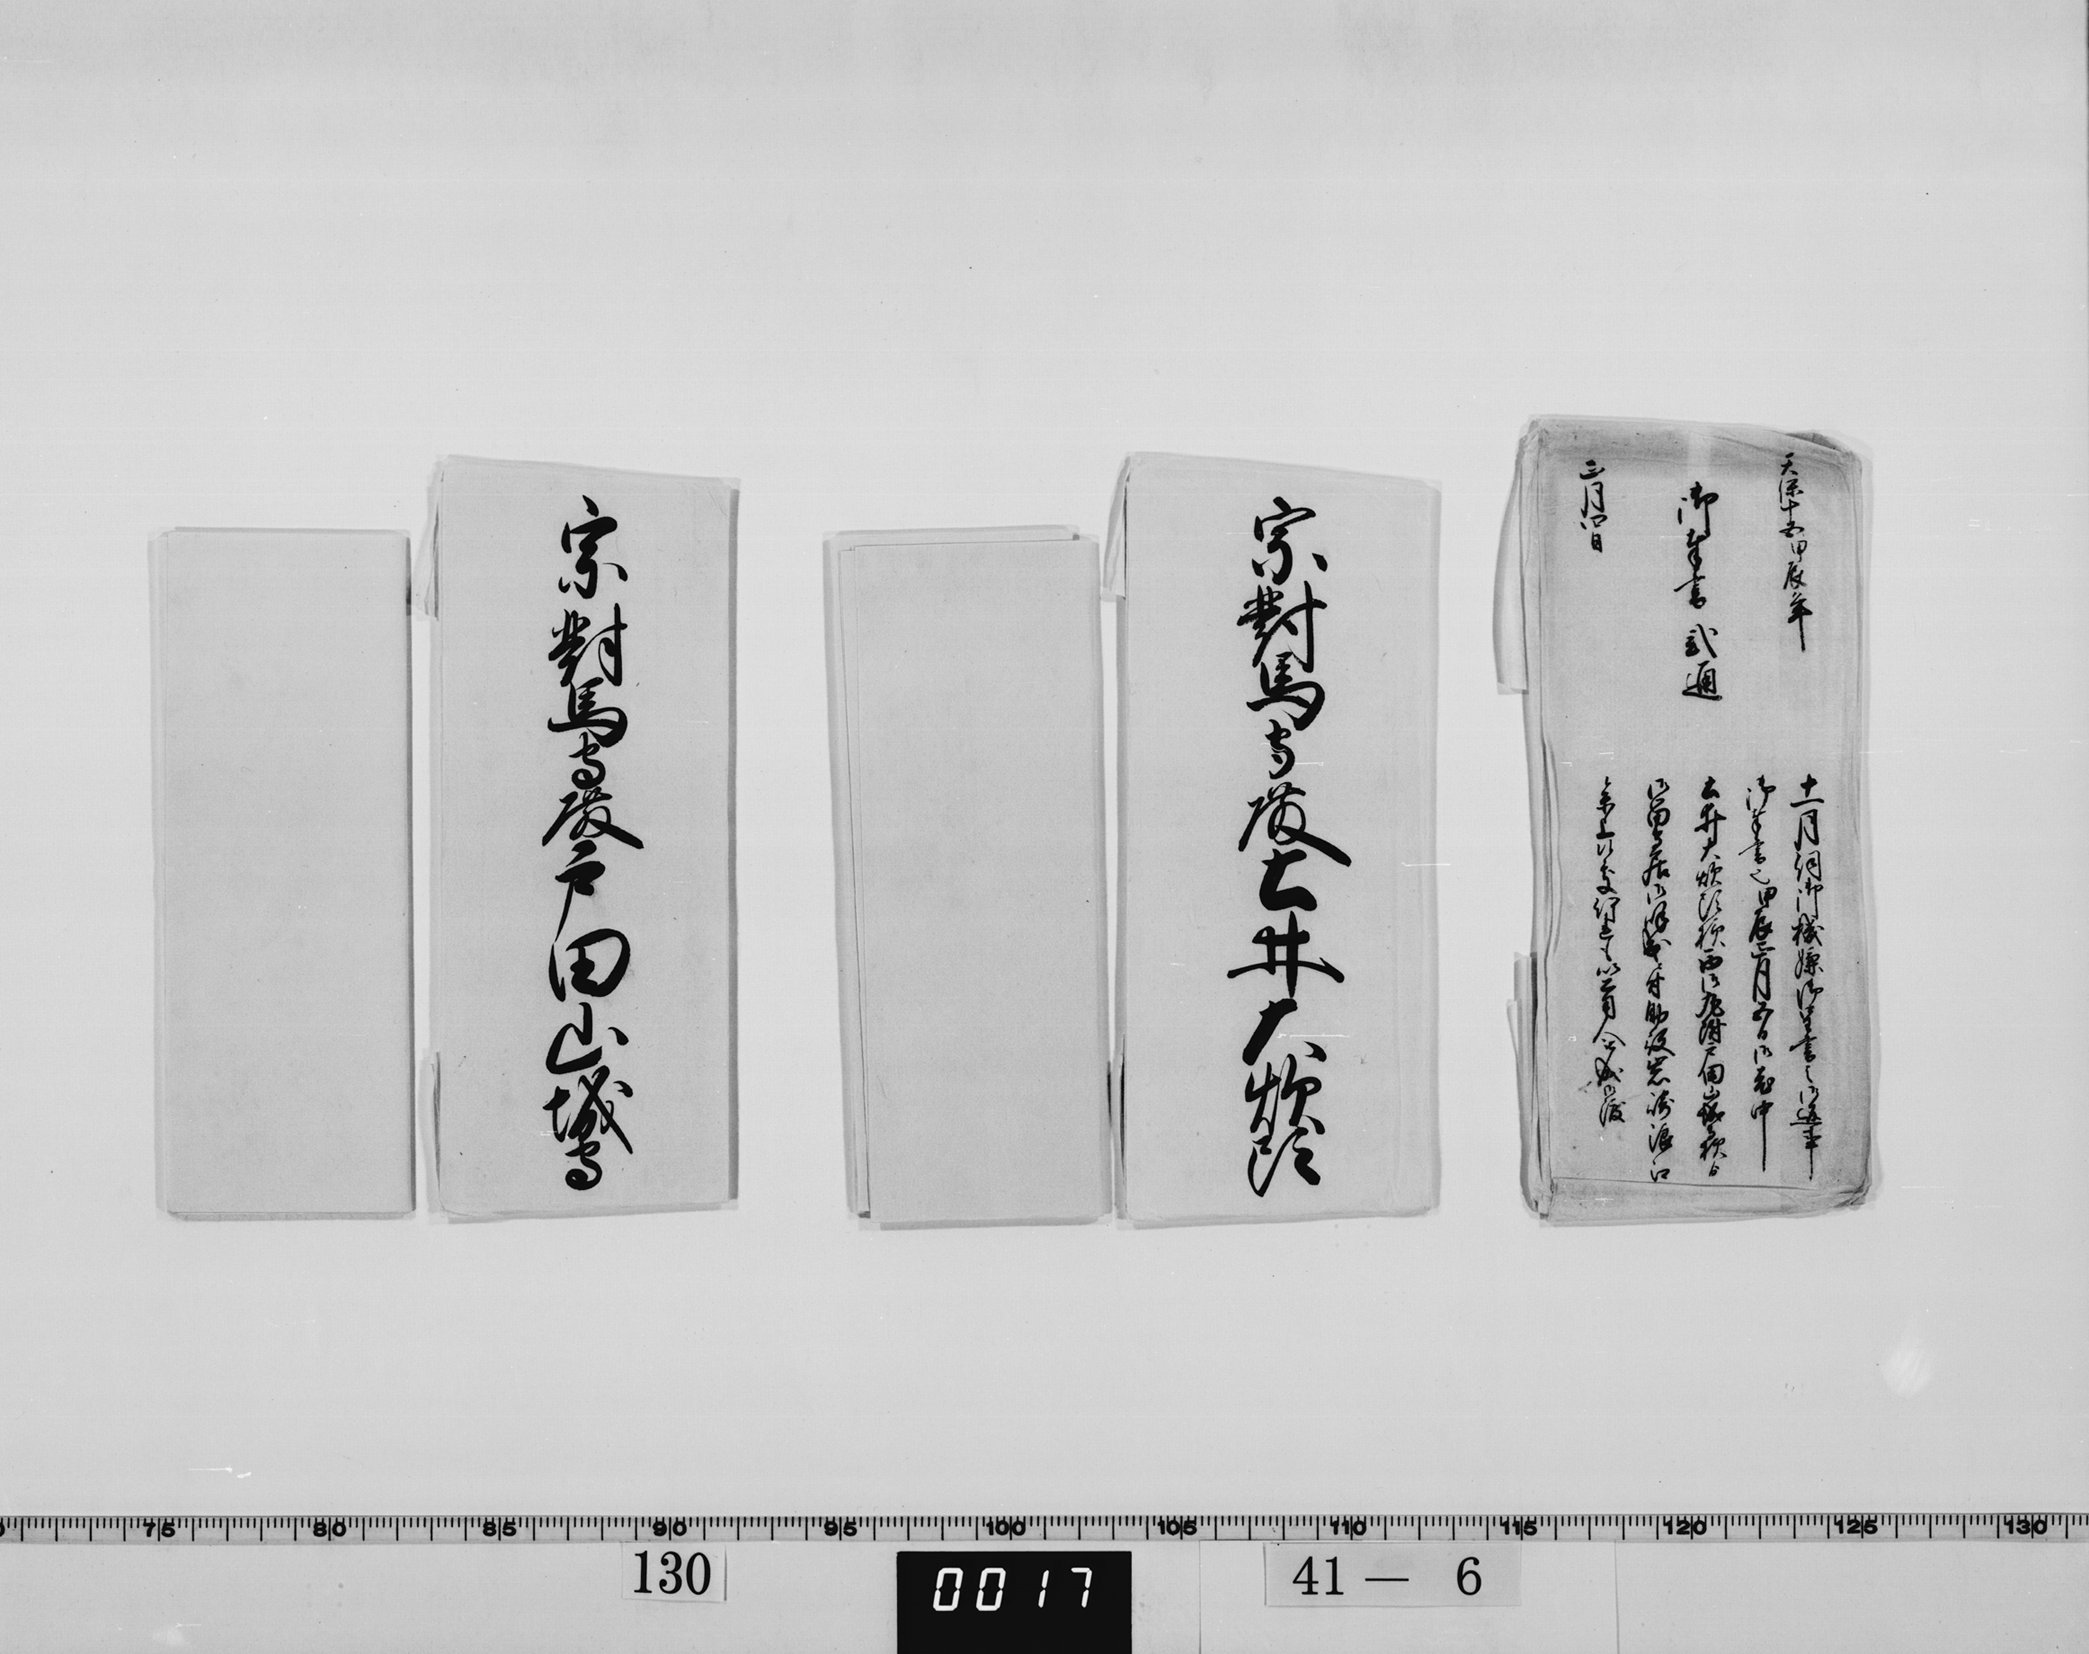 天保十五甲辰年
御奉書 弐通
正月四日
十一月伺御機嫌御呈書之御返事
御奉書也甲辰正月五日御老中
土井大炊頭様西御丸附戸田山城守様より
御留守居
宗對馬守殿 土井大炊頭
宗對馬守殿 戸田山城守
75 80 85 90 95 100 105 110 115 120 125 130
130
0017
41— 6